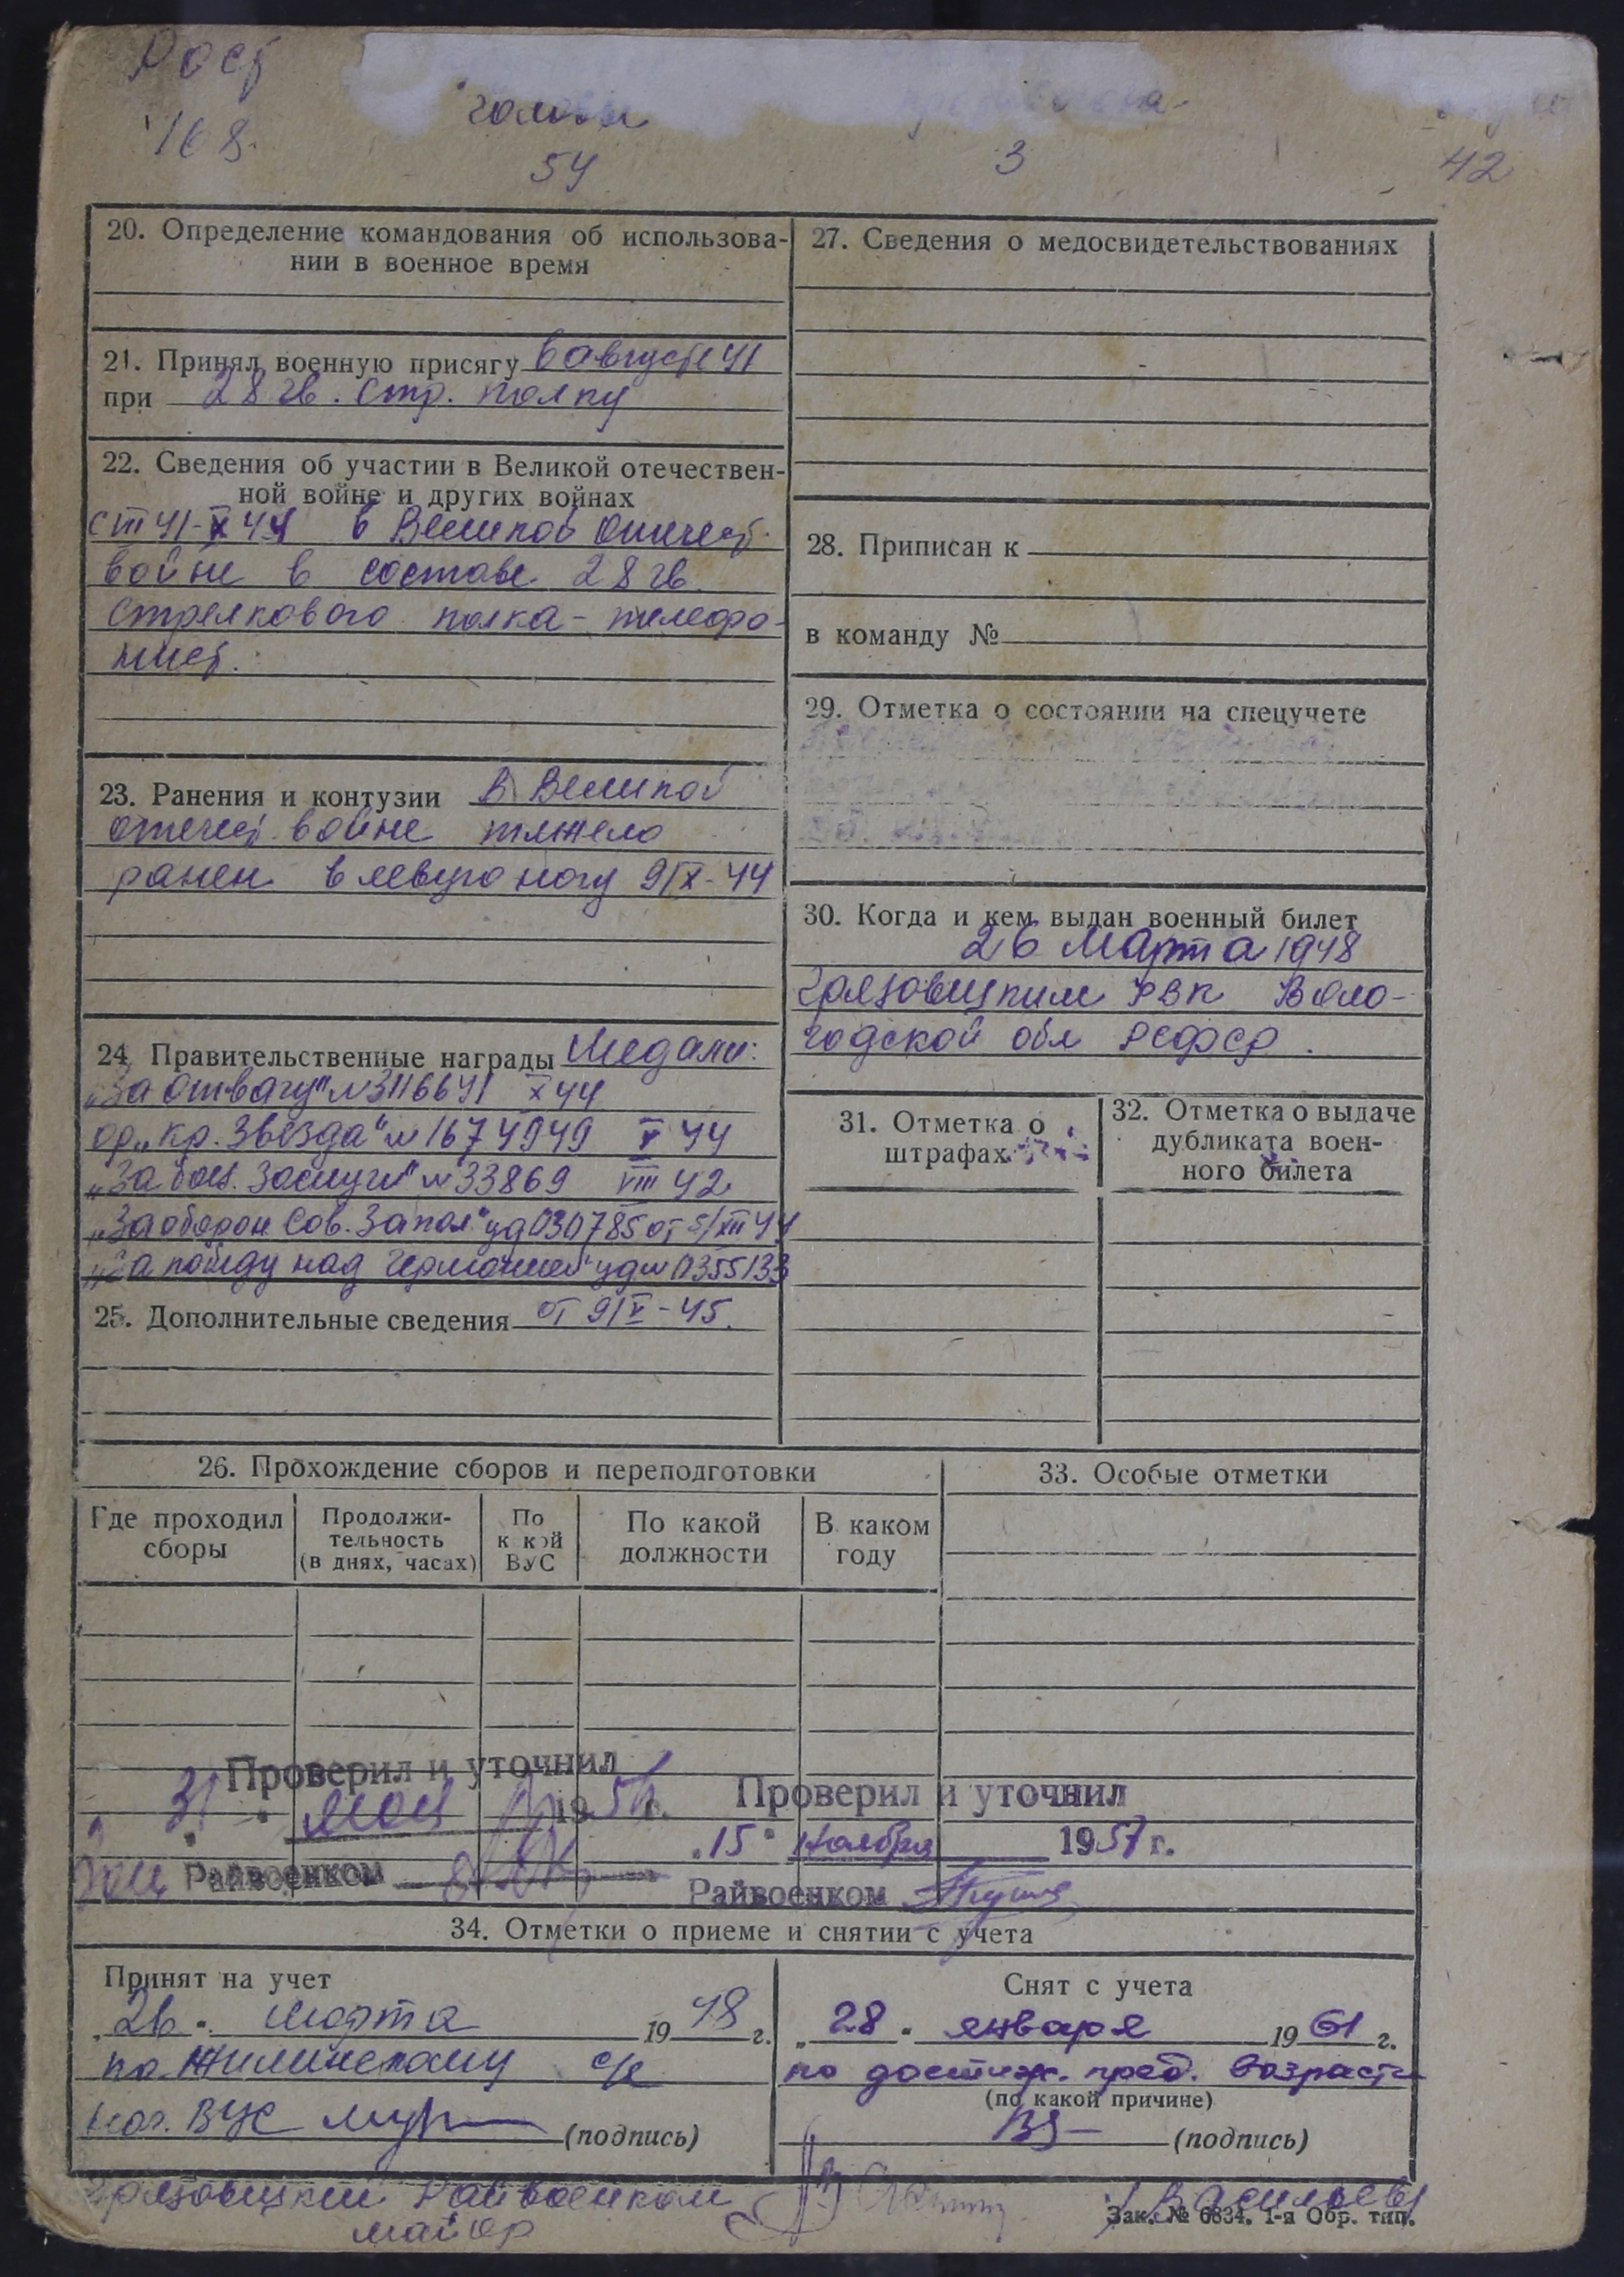 Рост
168
головы
54
3
42
20. Определение командования об использова-
нии в военное время
21. Принял военную присягу в августе 41
при 28 гв. стр. полку
22. Сведения об участии в Великой отечествен-
ной войне и других войнах
с VII 41-X 44 в Великой Отечест.
войне в составе 28 гв.
стрелкового полка - телефо-
нист.
23. Ранения и контузии В Великой
отечест. войне тяжело
ранен в левую ногу 9/IX-44
24. Правительственные награды Медали:
„За отвагу" №3116641 X 44
ор „Кр. Звезда" №1674949 V 44
„За боев. заслуги" №33869 VIII 42
„За оборон. Сов. Запол." уд 030785 от 5/XII 44
„За победу над Германией" уд № 0355133
25. Дополнительные сведения от 9/V-45.
27. Сведения о медосвидетельствованиях
28. Приписан к
в команду №
29. Отметка о состоянии на спецучете
30. Когда и кем выдан военный билет
26 Марта 1948
Грязовецким РВК Воло-
годской обл РСФСР.
31. Отметка о
штрафах
32. Отметка о выдаче
дубликата воен-
ного билета
26. Прохождение сборов и переподготовки
Где проходил
сборы
Продолжи-
тельность
(в днях, часах)
По
к кой
ВУС
По какой
должности
В каком
году
33. Особые отметки
Проверил и уточнил
31 мая
Райвоенком
Проверил и уточнил
„15" ноября 1957 г.
Райвоенком
34. Отметки о приеме и снятии с учета
Принят на учет
„26" марта 1948 г.
по Жилинскому с/с
нач. ВУС (подпись)
Снят с учета
„28" января 1961 г.
по достиж. пред. возраста
(по какой причине)
(подпись)
Грязовецкий Райвоенком
майор
/Васильев/
Зак. № 6834. 1-я Обр. тип.